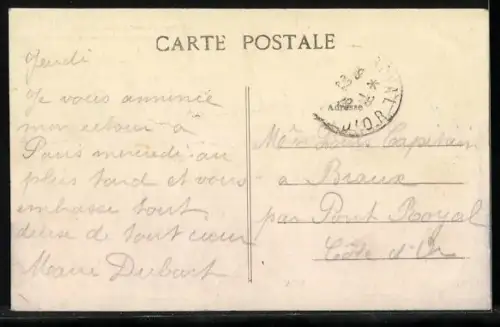 CARTE POSTALE
Jeudi
Je vous annonce
mon retour à
Paris mercredi au
plus tard et vous
embrasse tout
de tout cœur
Marie Dubart
Adresse
Louis Capitain
a Braux
par Pont Royal
Côte d'Or